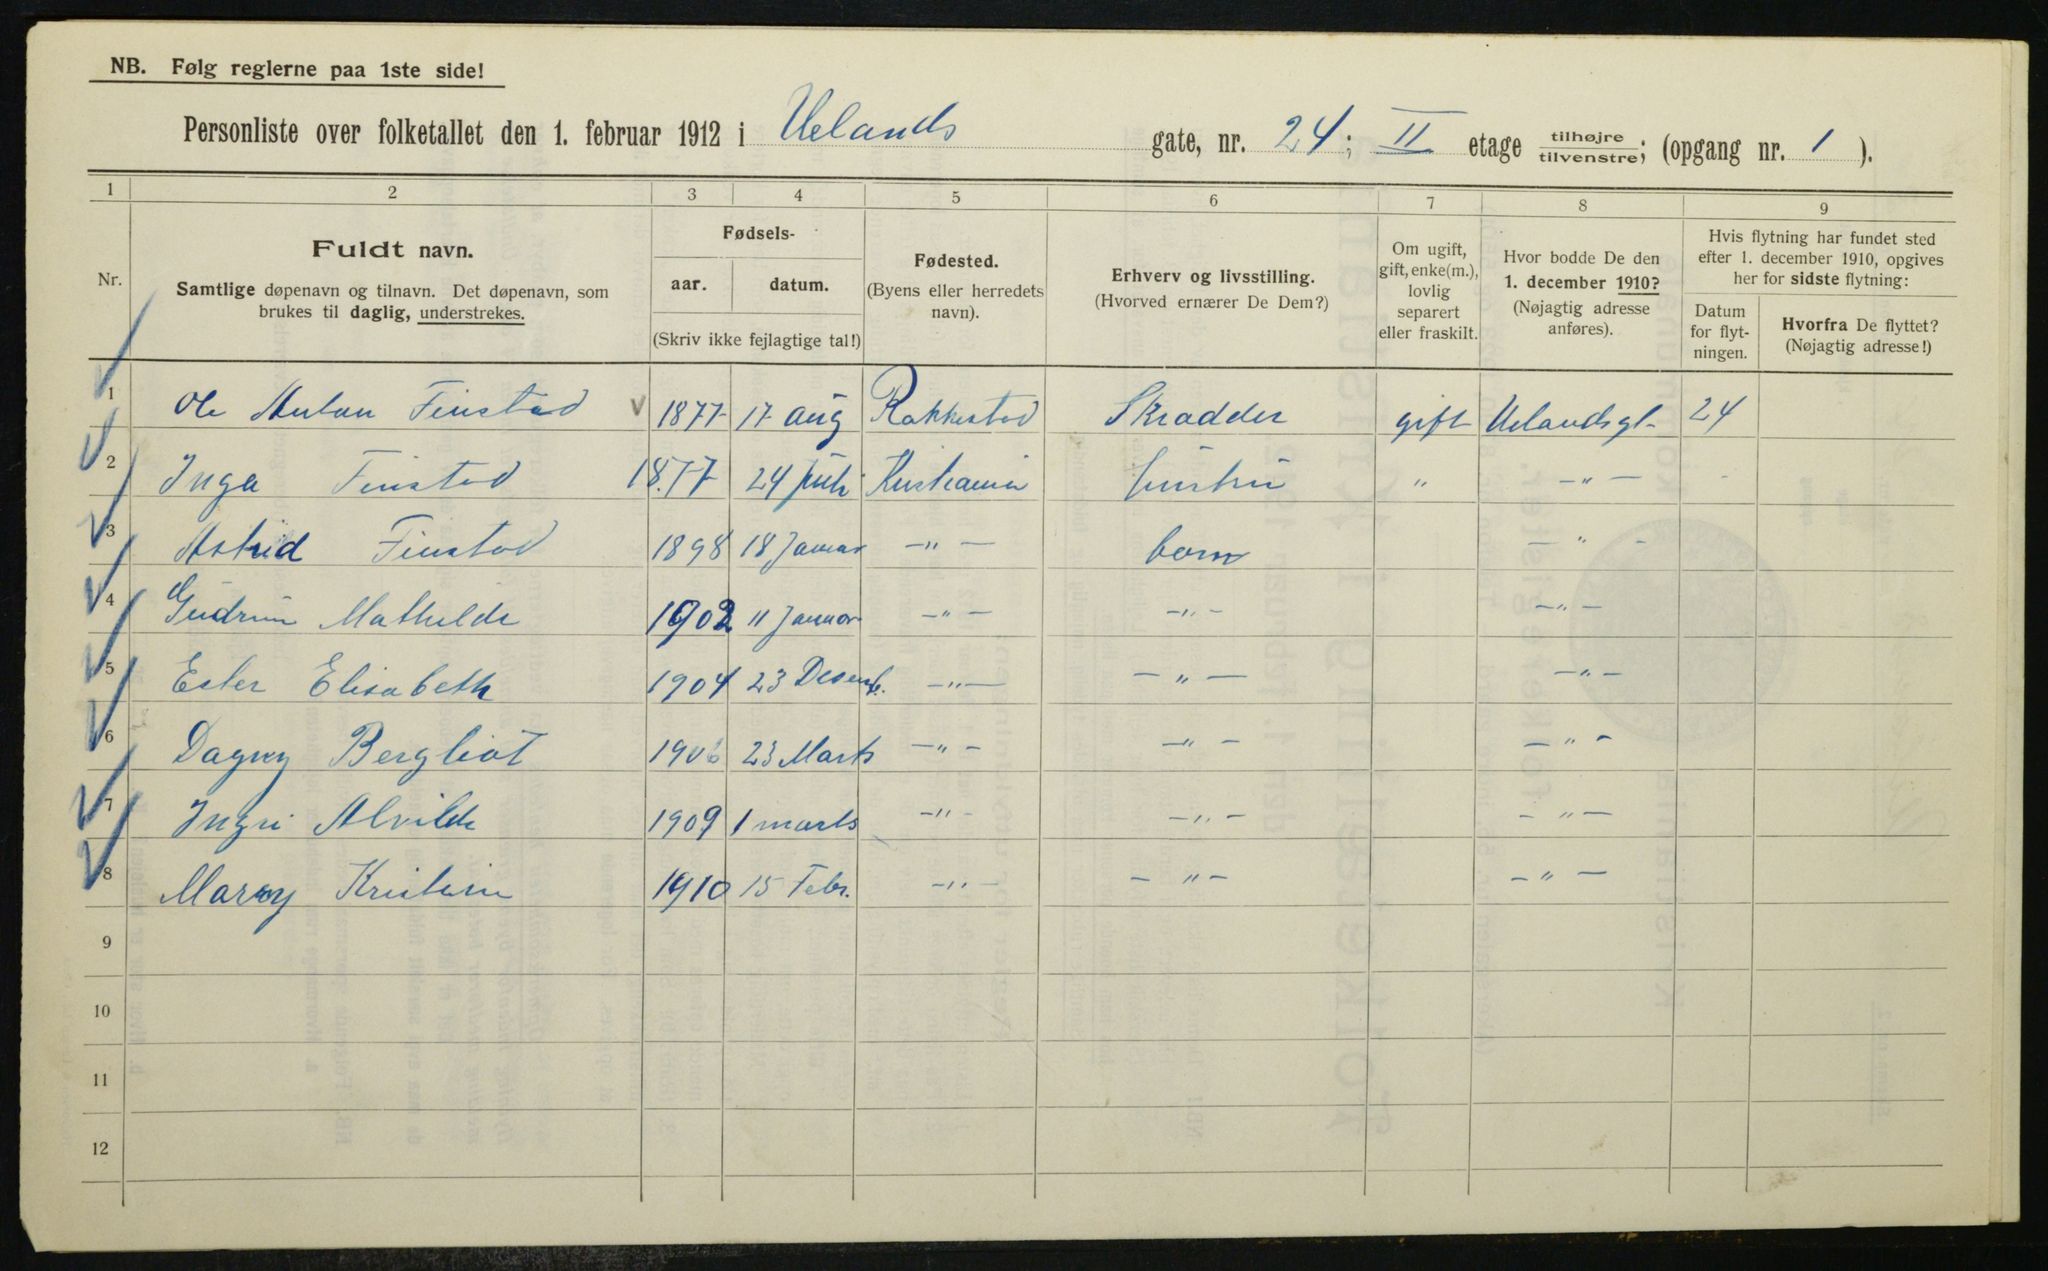 NB. Følg reglerne paa 1ste side!
Personliste over folketallet den 1. februar 1912 i Uelands gate, nr. 24; II etage tilhøjre/tilvenstre; (opgang nr. 1).
1 2 3 4 5 6 7 8 9
Nr.
Fuldt navn.
Samtlige døpenavn og tilnavn. Det døpenavn, som
brukes til daglig, understrekes.
Fødsels-
aar. datum.
(Skriv ikke fejlagtige tal!)
Fødested.
(Byens eller herredets
navn).
Erhverv og livsstilling.
(Hvorved ernærer De Dem?)
Om ugift,
gift, enke(m.),
lovlig
separert
eller fraskilt.
Hvor bodde De den
1. december 1910?
(Nøjagtig adresse
anføres).
Hvis flytning har fundet sted
efter 1. december 1910, opgives
her for sidste flytning:
Datum
for flyt-
ningen.
Hvorfra De flyttet?
(Nøjagtig adresse!)
1 Ole Anton Finstad v 1877 17 aug Rakkestad Skradder gift Uelandsgt- 24
2 Inga Finstad 1877 24 juli Kristiania hustru " -"-
3 Astrid Finstad 1898 18 Januar -"- barn -"-
4 Gudrun Mathilde 1902 11 Januar -"- -"- -"-
5 Ester Elisabeth 1904 23 Desemb. -"- -"- -"-
6 Dagny Bergliot 1906 23 Marts -"- -"- -"-
7 Ingri Alvilde 1909 1 marts -"- -"- -"-
8 Marry Kristine 1910 15 Febr. -"- -"- -"-
9
10
11
12